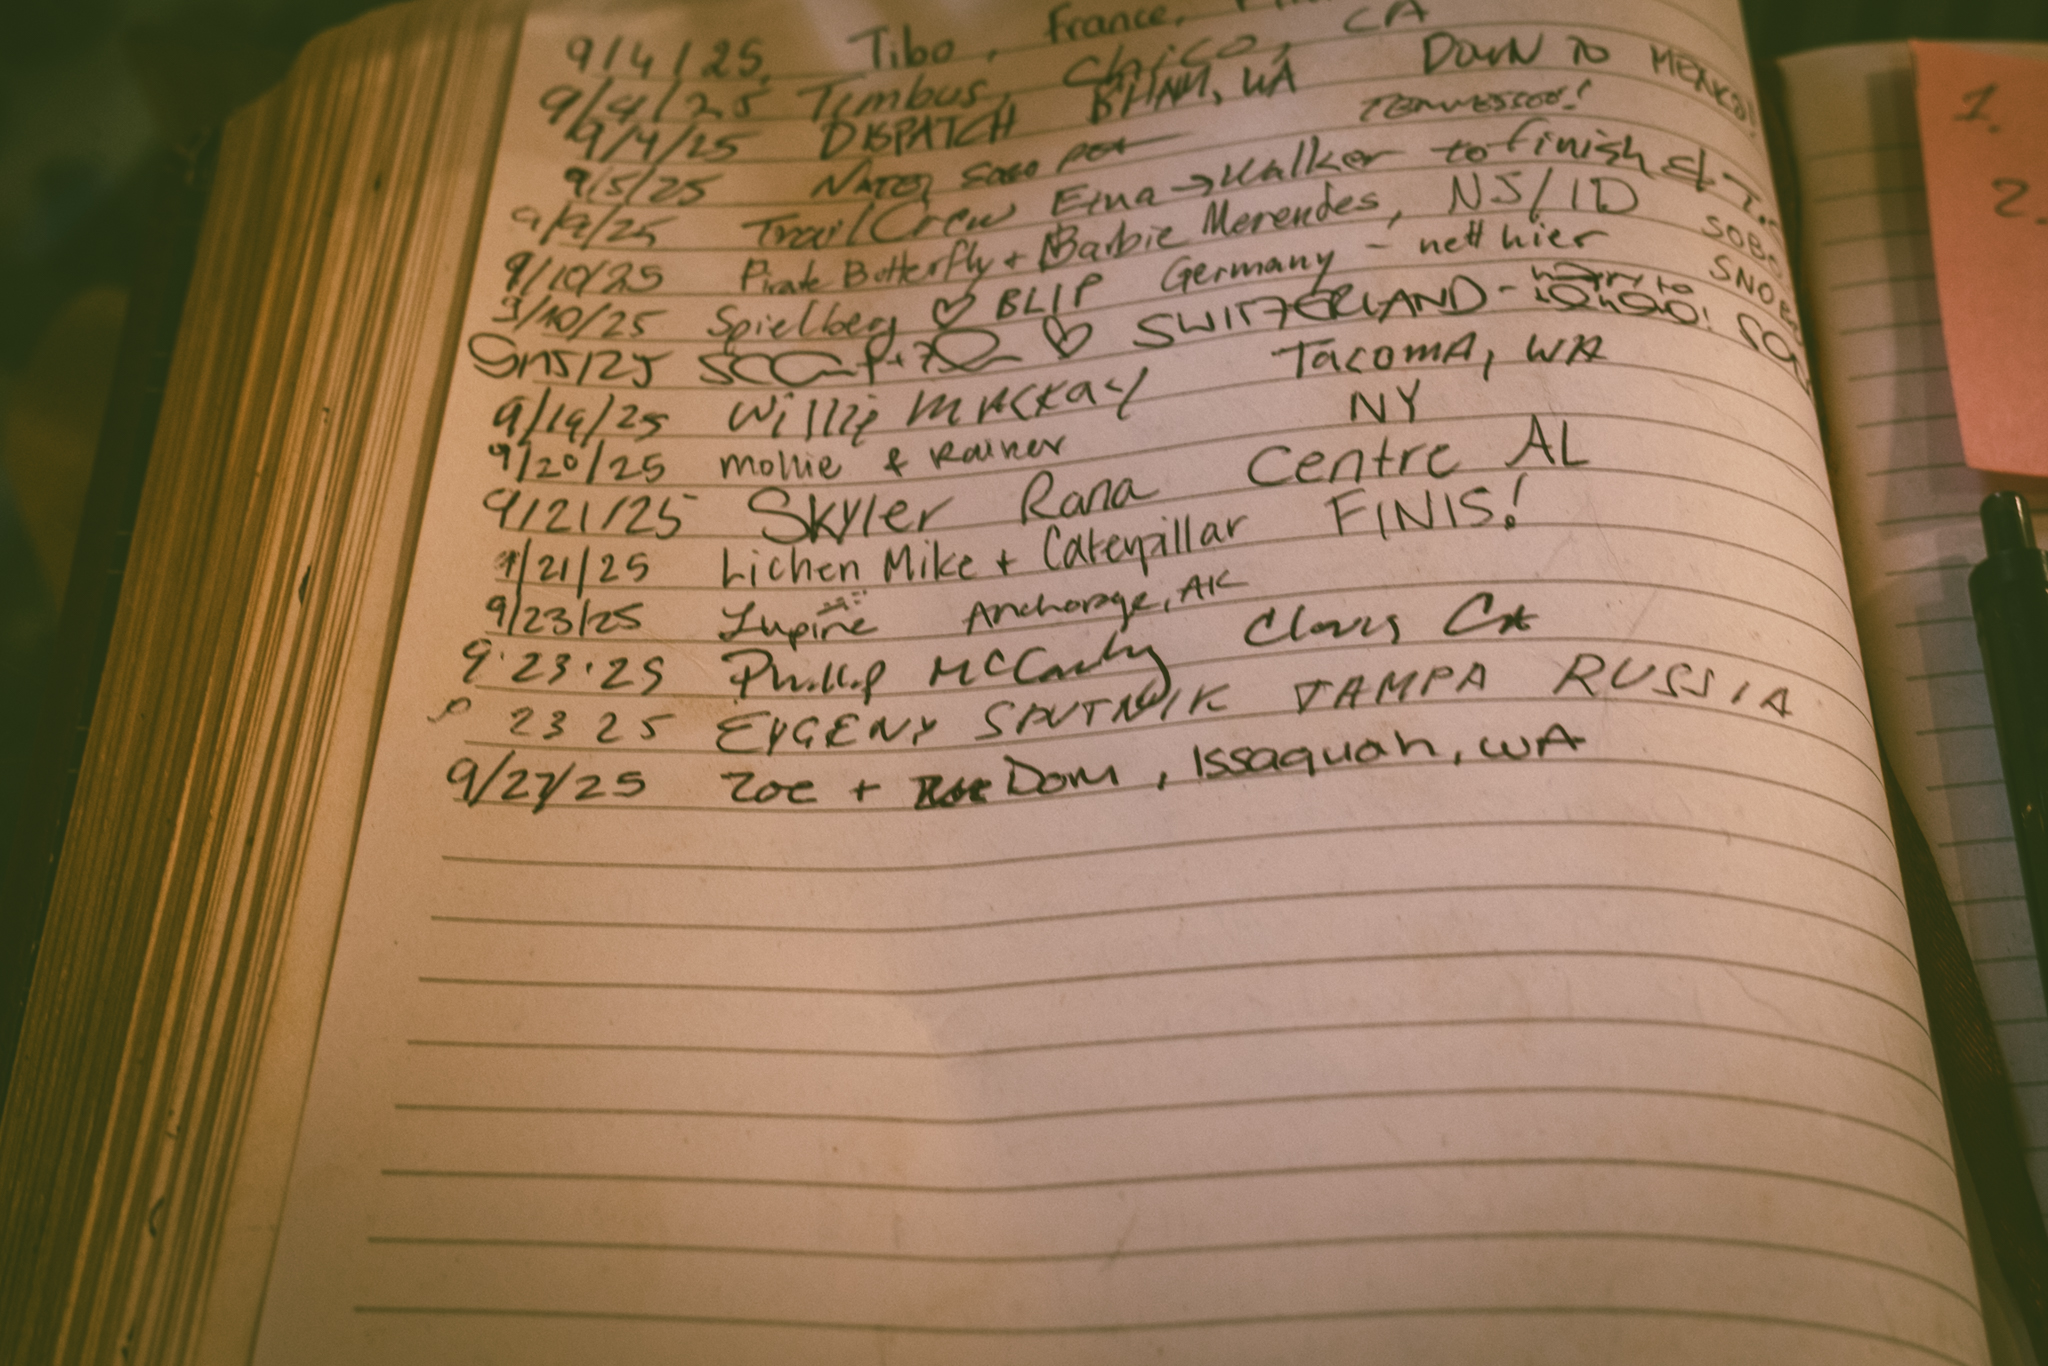 9/4/25, Tibo, France,
9/4/25 Timbus, Chico, CA
9/4/25 DISPATCH BHNM, WA DOWN TO MEXICO!
9/5/25 TENNESSEE!
9/9/25 Trail Crew Etna → Walker to finish
9/10/25 Pirate Butterfly + Barbie Merendes, NJ/ID SOBO
9/10/25 Spielberg ♡ BLIP Germany - nett hier SNOBO
9/15/25 ♡ SWITZERLAND -
9/19/25 Willie MACKAY TACOMA, WA
9/20/25 Mollie & Rainer NY
9/21/25 Skyler Rana Centre AL
9/21/25 Lichen Mike + Caterpillar FINIS!
9/23/25 Lupine Anchorage, AK
9·23·25 Phillip McCarthy Clovis CA
23 25 EVGENY SPUTNIK TAMPA RUSSIA
9/27/25 Zoe + Dom, Issaquah, WA
1.
2.